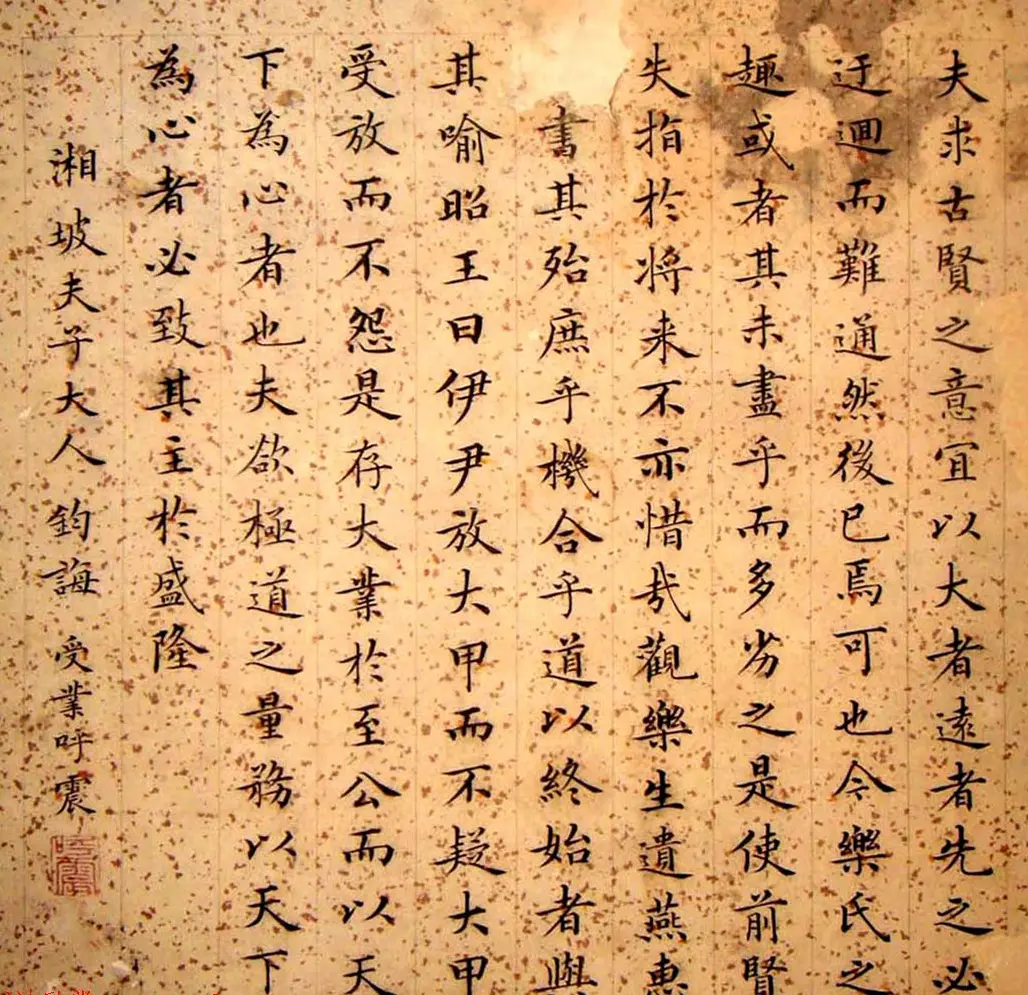 夫求古賢之意宜以大者遠者先之必
迂迴而難通然後已焉可也令樂氏之
趣或者其未盡乎而多劣之是使前賢
失指於將来不亦惜㢤觀樂生遺燕惠
書其殆庶乎機合乎道以終始者與
其喻昭王曰伊尹放大甲而不疑大甲
受放而不怨是存大業於至公而以天
下為心者也夫欲極道之量務以天下
為心者必致其主於盛隆
湘坡夫子大人 鈞誨 受業呼震